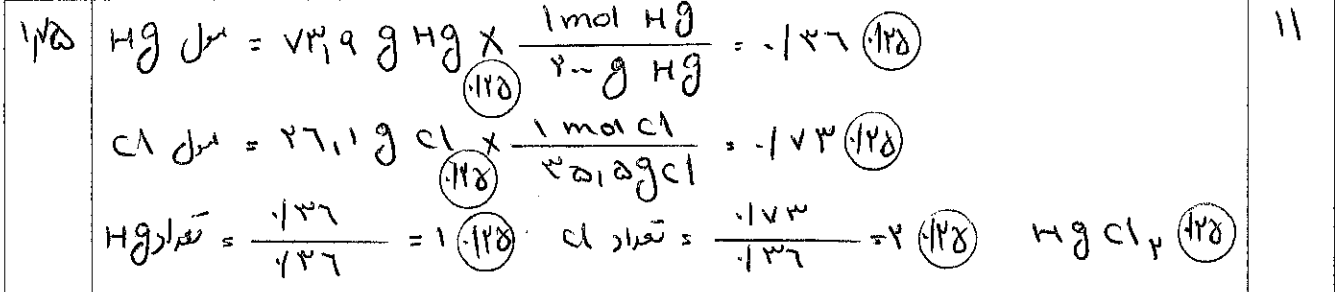 ۱۱
مول Hg = ۷۳,۹ g Hg × (۰/۲۵) 1 mol Hg / ۲۰۰ g Hg = ۰/۳۶ (۰/۲۵) ۱,۷۵
مول Cl = ۲۶,۱ g Cl × (۰/۲۵) ۱ mol Cl / ۳۵,۵ g Cl = ۰/۷۳ (۰/۲۵)
تعداد Hg = ۰/۳۶ / ۰/۳۶ = ۱ (۰/۲۵) تعداد Cl = ۰/۷۳ / ۰/۳۶ = ۲ (۰/۲۵) HgCl₂ (۰/۲۵)